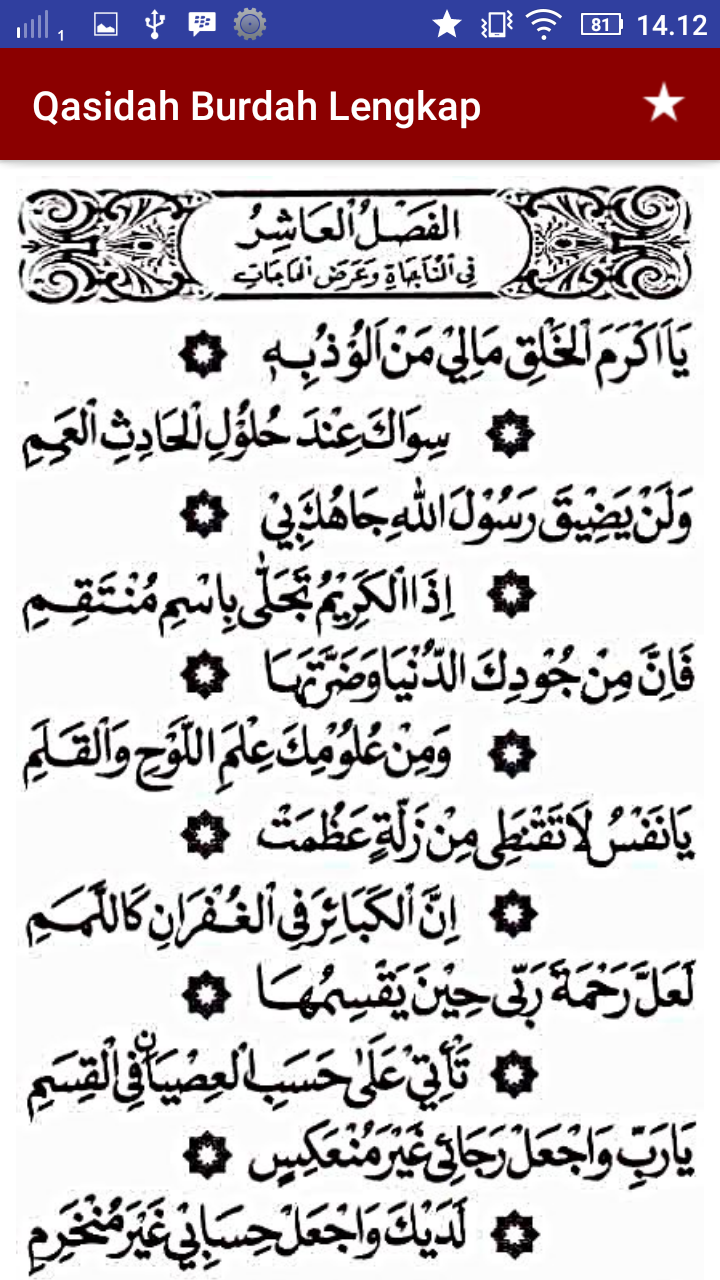 1 81 14.12
Qasidah Burdah Lengkap
الفَصْلُ الْعَاشِرُ
فِي الْمُنَاجَاةِ وَعَرَضِ الْحَاجَاتِ
يَا اَكْرَمَ الْخَلْقِ مَالِيْ مَنْ اَلُوْذُ بِهِ
سِوَاكَ عِنْدَ حُلُوْلِ الْحَادِثِ الْعَمِمِ
وَلَنْ يَضِيْقَ رَسُوْلَ اللهِ جَاهُكَ بِيْ
اِذَا الْكَرِيْمُ تَجَلّٰى بِاسْمِ مُنْتَقِمِ
فَاِنَّ مِنْ جُوْدِكَ الدُّنْيَا وَضَرَّتَهَا
وَمِنْ عُلُوْمِكَ عِلْمَ اللَّوْحِ وَالْقَلَمِ
يَا نَفْسُ لَا تَقْنَطِى مِنْ زَلَّةٍ عَظُمَتْ
اِنَّ الْكَبَائِرَ فِى الْغُفْرَانِ كَاللَّمَمِ
لَعَلَّ رَحْمَةَ رَبِّى حِيْنَ يَقْسِمُهَا
تَأْتِيْ عَلٰى حَسَبِ الْعِصْيَانِ فِى الْقِسَمِ
يَارَبِّ وَاجْعَلْ رَجَائِى غَيْرَ مُنْعَكِسٍ
لَدَيْكَ وَاجْعَلْ حِسَابِيْ غَيْرَ مُنْخَرِمِ